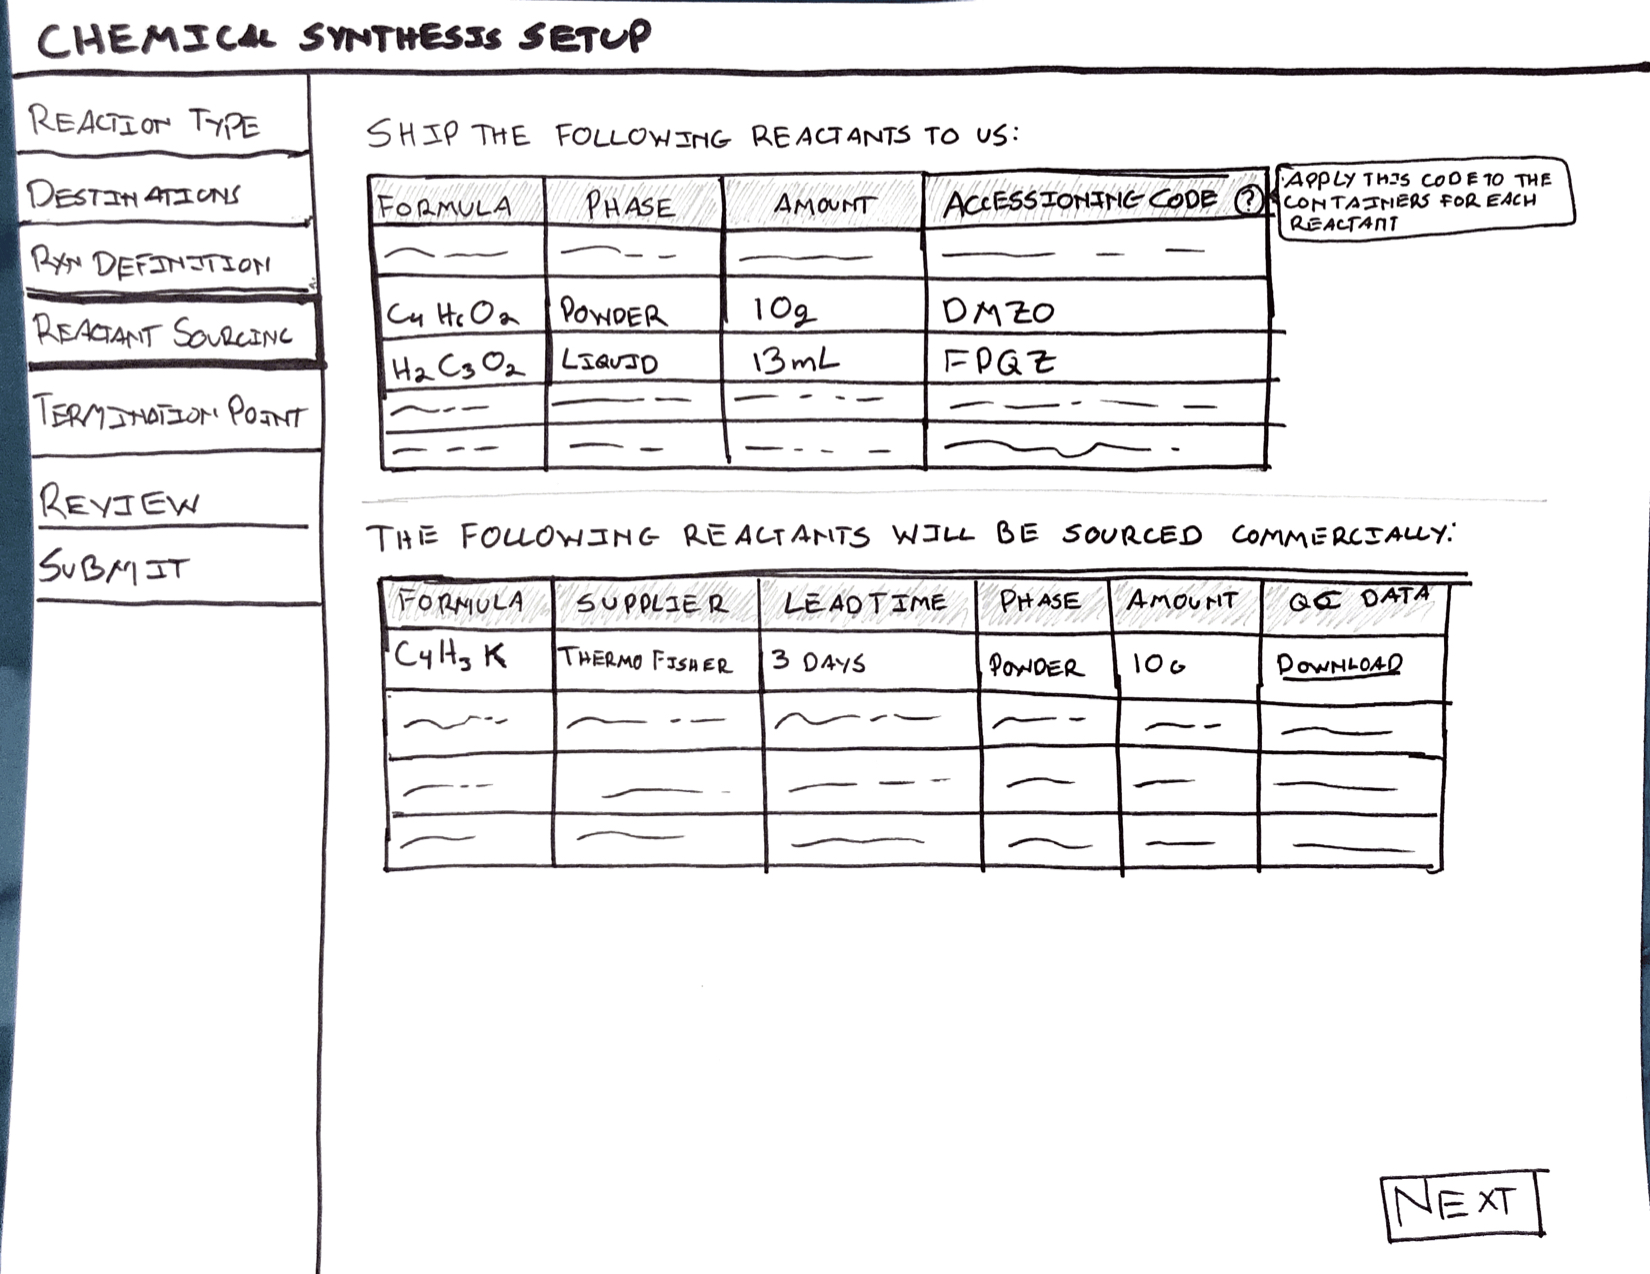 CHEMICAL SYNTHESIS SETUP
REACTION TYPE
DESTINATIONS
RXN DEFINITION
REACTANT SOURCING
TERMINATION POINT
REVIEW
SUBMIT
SHIP THE FOLLOWING REACTANTS TO US:
FORMULA PHASE AMOUNT ACCESSIONING CODE ?
APPLY THIS CODE TO THE
CONTAINERS FOR EACH
REACTANT
POWDER 10g DMZO
H2C3O2 LIQUID 13mL FPQZ
THE FOLLOWING REACTANTS WILL BE SOURCED COMMERCIALLY:
FORMULA SUPPLIER LEADTIME PHASE AMOUNT QC DATA
C4H3K THERMO FISHER 3 DAYS POWDER 10G DOWNLOAD
NEXT